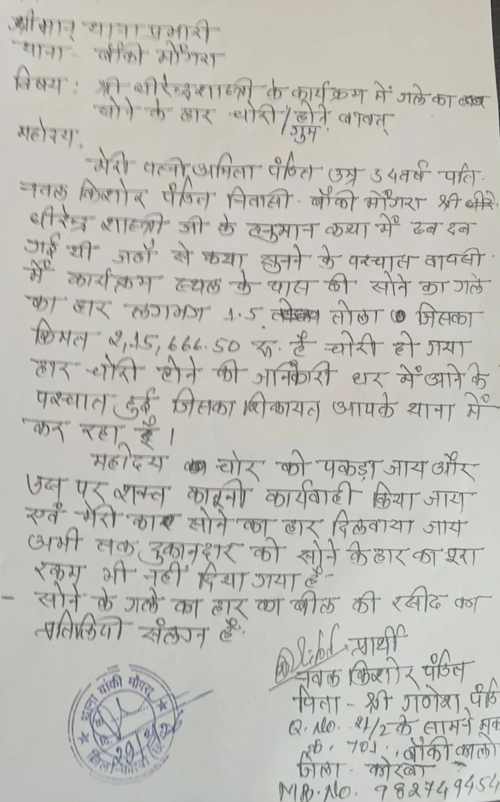 श्रीमान् थाना प्रभारी
थाना - बाँकी मोंगरा
विषय: श्री धीरेन्द्र शास्त्री के कार्यक्रम में गले का
सोने के हार चोरी/होने बावत्
गुम
महोदय,
मेरी पत्नी अमिता पंडित उम्र 54 वर्ष पति
नवल किशोर पंडित निवासी - बाँकी मोंगरा श्री
धीरेन्द्र शास्त्री जी के हनुमान कथा में
गई थी जहाँ से कथा सुनने के पश्चात वापसी
में कार्यक्रम स्थल के पास की सोने का गले
का हार लगभग 1.5 तोला जिसका
किमत 2,15,666.50 रु. है चोरी हो गया
हार चोरी होने की जानकारी घर में आने के
पश्चात हुई जिसका शिकायत आपके थाना में
कर रहा हूँ।
महोदय चोर को पकड़ा जाय और
उस पर शक्त कानूनी कार्यवाही किया जाय
एवं मेरी सोने का हार दिलवाया जाय
अभी तक दुकानदार को सोने के हार का पुरा
रकम भी नहीं दिया गया है -
- सोने के गले का हार का बील की रसीद का
प्रतिलिपी संलग्न है।
प्रार्थी
नवल किशोर पंडित
पिता - श्री गणेश पंडि
Q. No. 21/2 के सामने
701, बाँकी
जिला - कोरबा
MB. No. 982749454
थाना बांकी मोंगरा
जिला-कोरबा